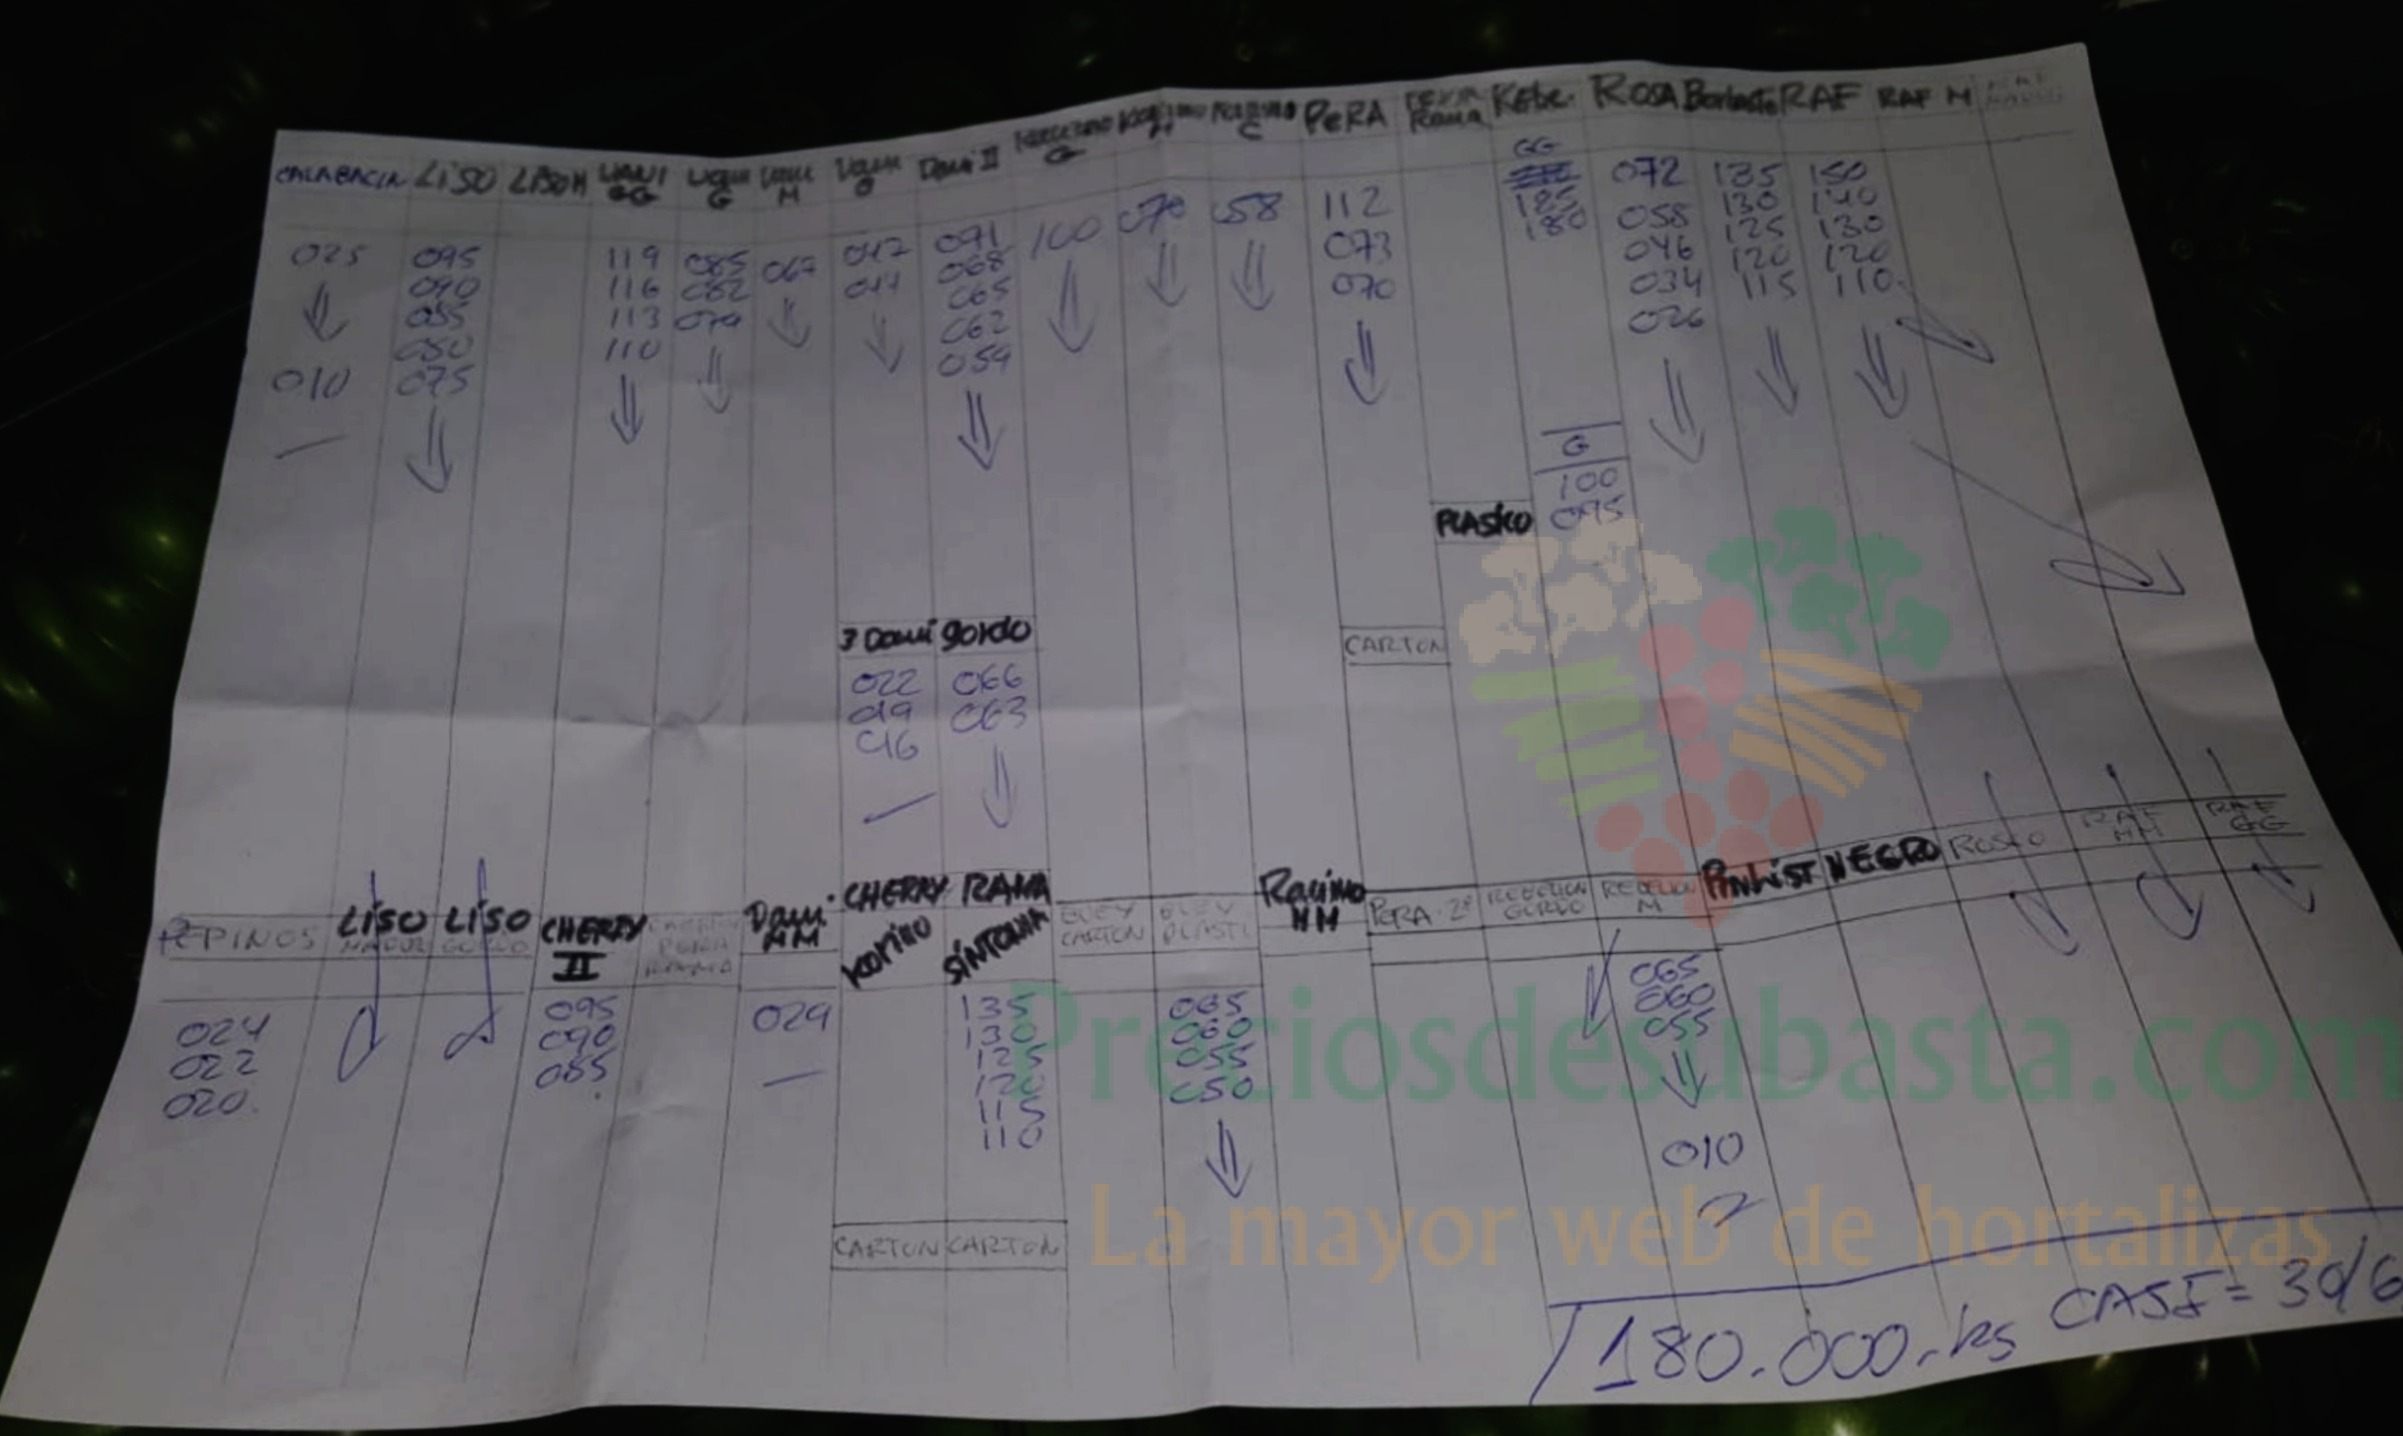 CALABACIN LISO LISO M DANI GG DANI G DANI M DANI II RACIMO G RACIMO C PERA PERA RAMA Kebe. ROSA RAF RAF M
GG
025 095 119 085 067 047 091 100 070 058 112 185 072 135 150
090 116 082 044 068 073 180 058 130 140
085 113 079 065 070 046 125 130
080 110 062 034 120 120
010 075 059 026 115 110
G
100
095
PLASTCO
CARTON
3 Dani gordo
022 066
019 063
016
PEPINOS LISO MADUR LISO GORDO CHERRY II CHERRY PERA RAMA Dani MM CHERRY RAMA SINTONIA CARTON Racimo MM PERA 2ª REBELION GORDO REBELION M NEGRO ROSCO RAF MM RAF GG
024 095 029 135 065 065
022 090 130 060 060
020 085 125 055 055
120 050
115
110
010
CARTON CARTON
Preciosdesubasta.com
La mayor web de hortalizas
180.000.ks CASI = 30/6